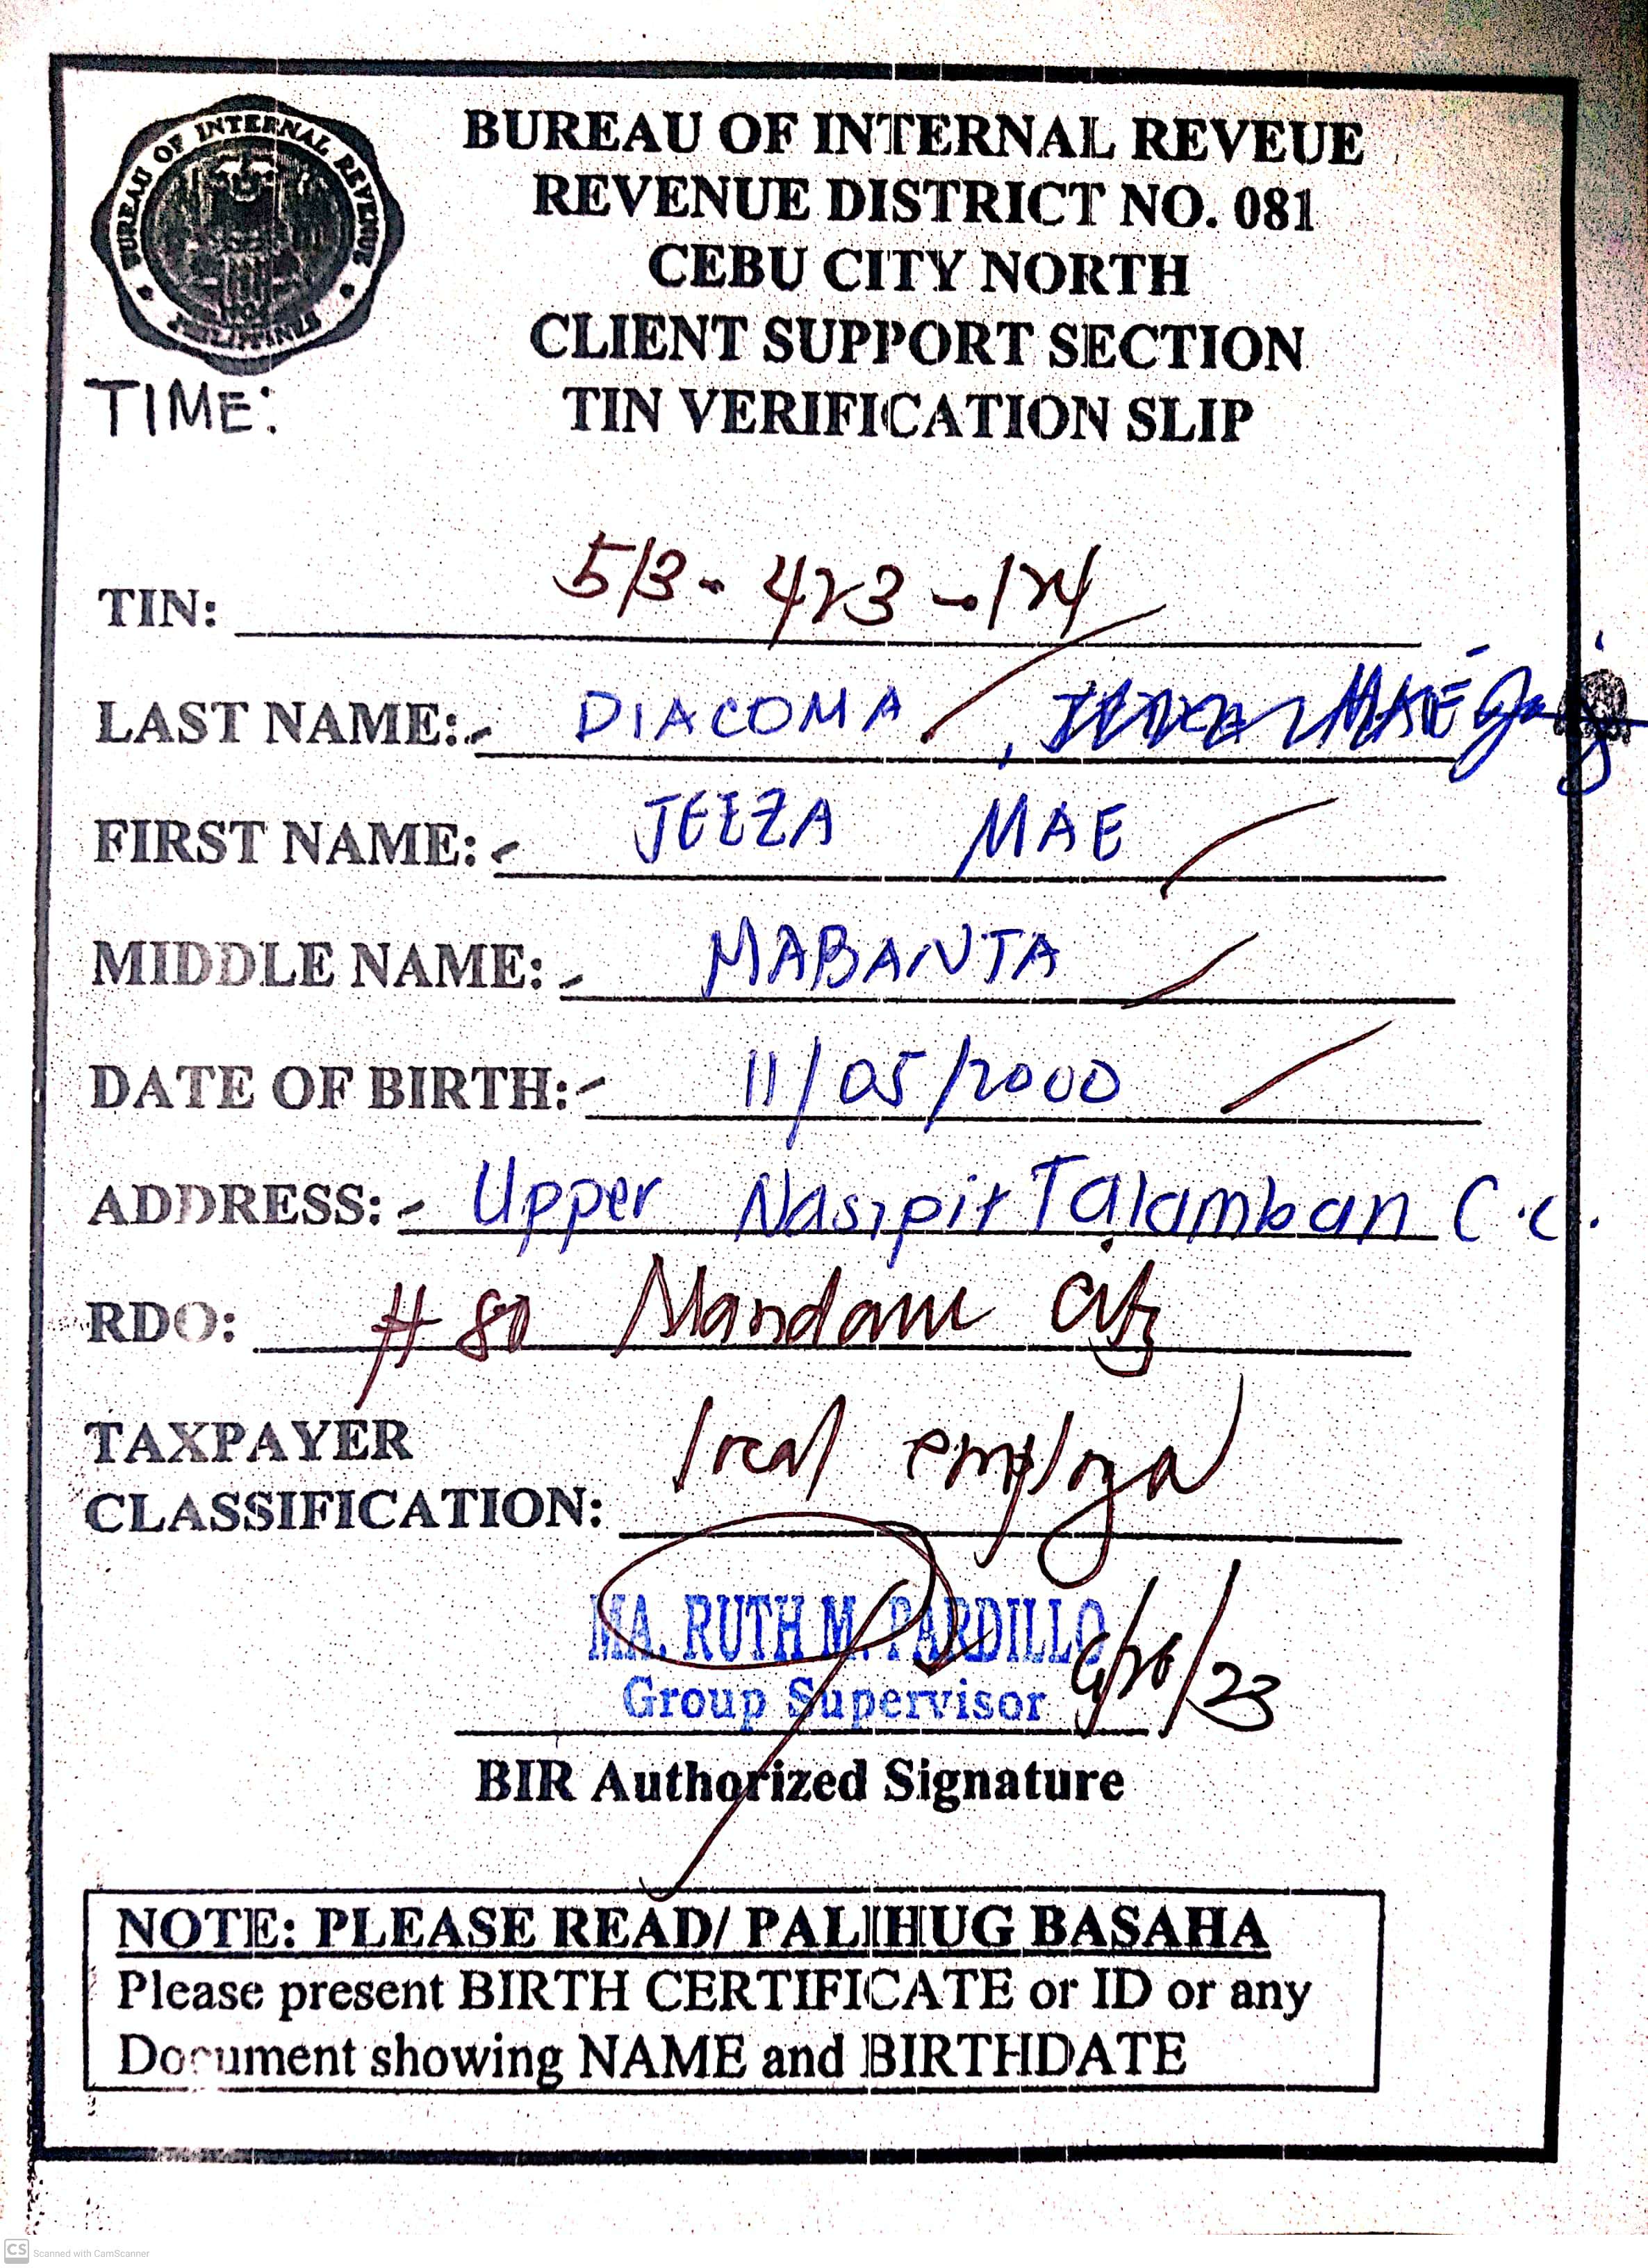 BUREAU OF INTERNAL REVENUE
PHILIPPINES
BUREAU OF INTERNAL REVEUE
REVENUE DISTRICT NO. 081
CEBU CITY NORTH
CLIENT SUPPORT SECTION
TIN VERIFICATION SLIP
TIME:
TIN: 513-423-124
LAST NAME: DIACOMA,
FIRST NAME: JEEZA MAE
MIDDLE NAME: MABANTA
DATE OF BIRTH: 11/05/2000
ADDRESS: Upper Nasipit Talamban C.C.
RDO: #80 Mandaue City
TAXPAYER
CLASSIFICATION: local employee
MA. RUTH M. PARDILLO
Group Supervisor /26/23
BIR Authorized Signature
NOTE: PLEASE READ/ PALIHUG BASAHA
Please present BIRTH CERTIFICATE or ID or any
Document showing NAME and BIRTHDATE
CS Scanned with CamScanner